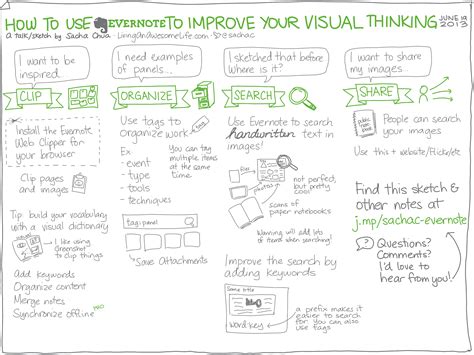 HOW TO USE EVERNOTE TO IMPROVE YOUR VISUAL THINKING
JUNE 19
2013
a talk/sketch by Sacha Chua - LivingAnAwesomeLife.com - @sachac
I want to be
inspired.
CLIP
Install the Evernote
Web Clipper for
your browser
Clip pages
and images
Tip: build your vocabulary
with a visual dictionary
I like using
Greenshot
to clip things
Add keywords
Organize content
Merge notes
Synchronize offline
PRO
I need examples
of panels...
ORGANIZE
Use tags to
organize work
Ex
- event
- type
- tools
- techniques
You can tag
multiple items
at the same
time
tag:panel
Save Attachments
I sketched that before
Where is it?
SEARCH
Use Evernote to search
handwritten text in
images!
Paper
photos
not perfect,
but pretty
cool
scans of
paper notebooks
Warning: will add lots
of items when searching!
Improve the search by
adding keywords
Some title
word-key
a prefix makes it
easier to search
for you can also
use tags
I want to share
my images...
SHARE
People can search
your images
Use this + website/Flickr/etc
Find this sketch &
other notes at
j.mp/sachac-evernote
Questions?
Comments?
I'd love to
hear from you!